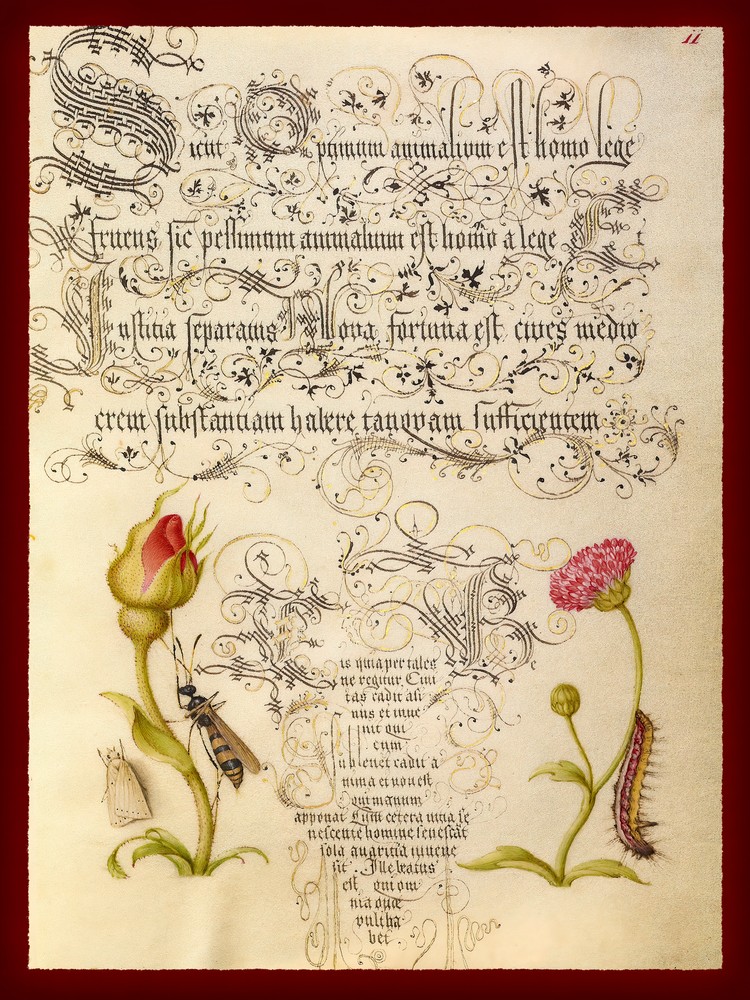 11
Sicut Optimum animalium est homo lege
fruens sic pessimum animalium est homo a lege Et
Iustitia separatus Nova fortuna est cives medio
crem substantiam habere tanquam sufficientem
Be
is quia per tales
ne regitur. Civi
tas cadit asi
nus et inue
nit qui
eum
sublevet cadit a
nima et non est
qui manum
apponat Cum cetera vitia se
nescente homine senescāt
sola avaritia iuuene
sit. Ille beatus
est qui om
nia que
vult ha
bet.